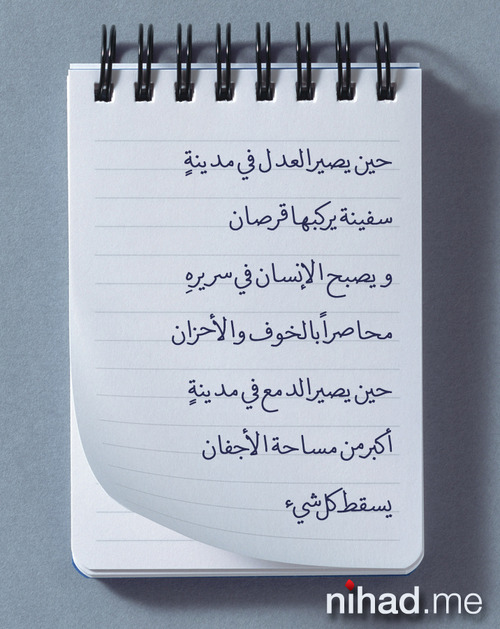 حين يصير العدل في مدينةٍ
سفينة يركبها قرصان
ويصبح الإنسان في سريرهِ
محاصراً بالخوف والأحزان
حين يصير الدمع في مدينةٍ
أكبر من مساحة الأجفان
يسقط كل شيء
nihad.me